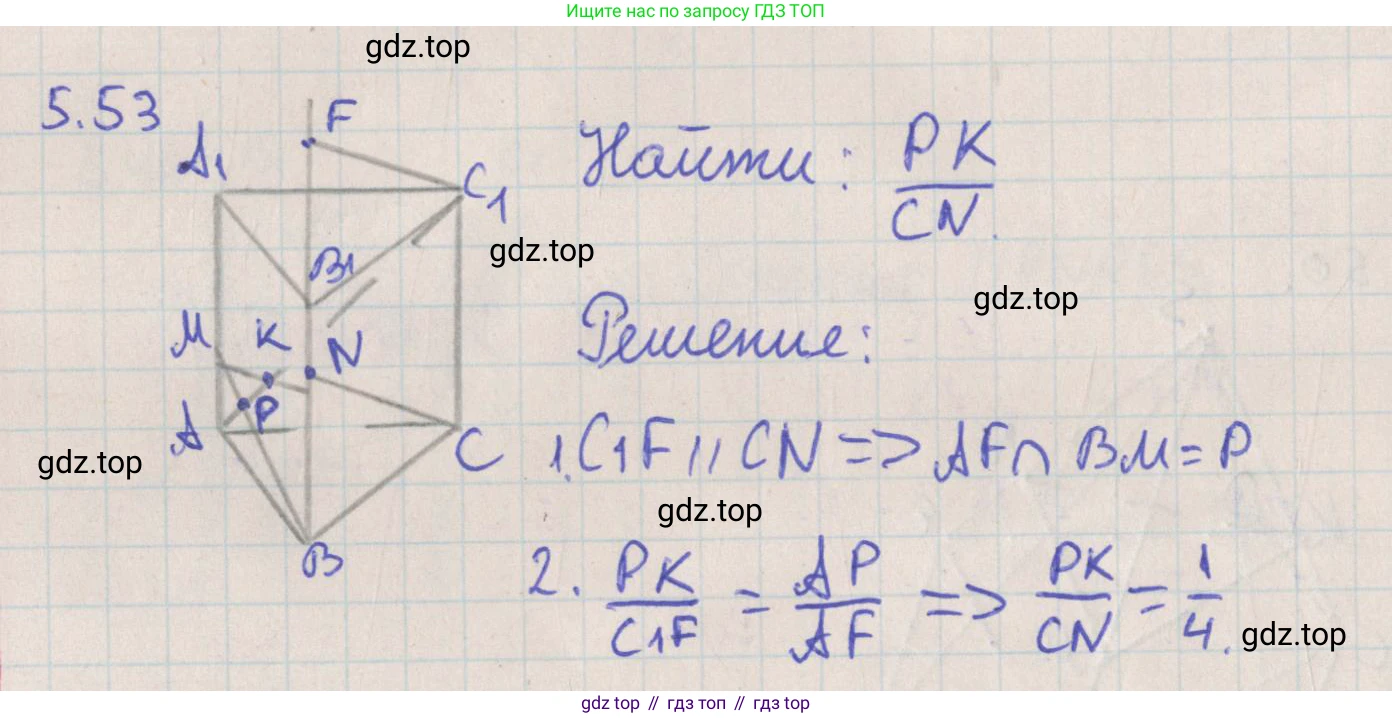 Ищите нас по запросу ГДЗ ТОП
gdz.top
5.53
F
A₁
C₁
Найти: PK/CN.
gdz.top
B₁
gdz.top
M
K
N
Решение:
P
A
C
gdz.top
1. C₁F || CN => AF ∩ BM = P
gdz.top
B
2. PK/C₁F = AP/AF => PK/CN = 1/4.
gdz.top
gdz top // гдз топ // gdz top